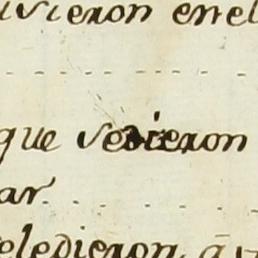 uvieron en el
que sedieron
ar
eledieron, q